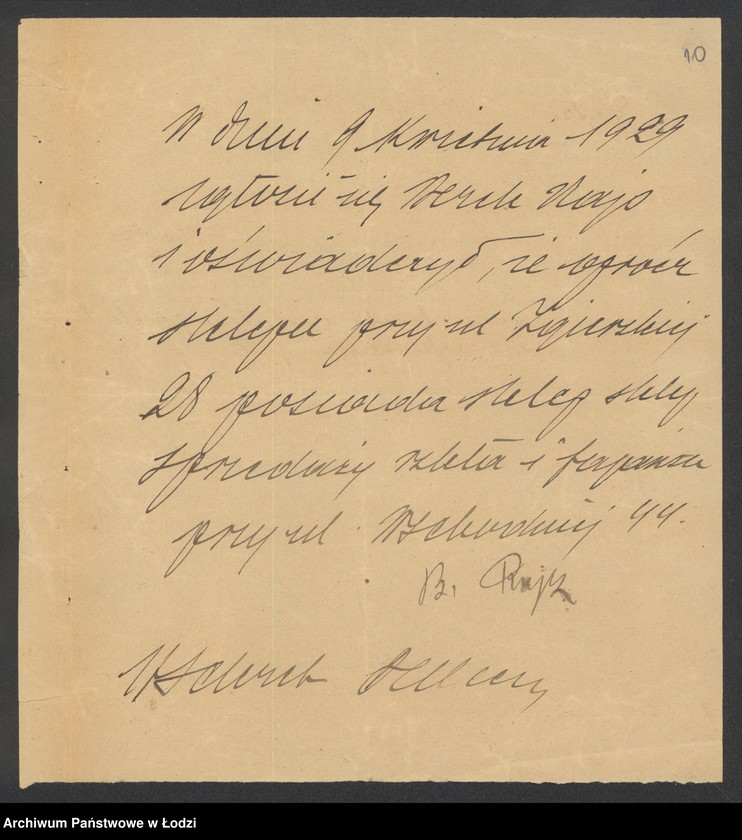 10
W dniu 9 Kwietnia 1929
zgłosił się Berek Rajs
i oświadczył, że oprócz
sklepu przy ul Zgierskiej
28 posiada sklep
sprzedaży szkła i fajansu
przy ul. Wschodniej 44.
B. Rajs
Archiwum Państwowe w Łodzi